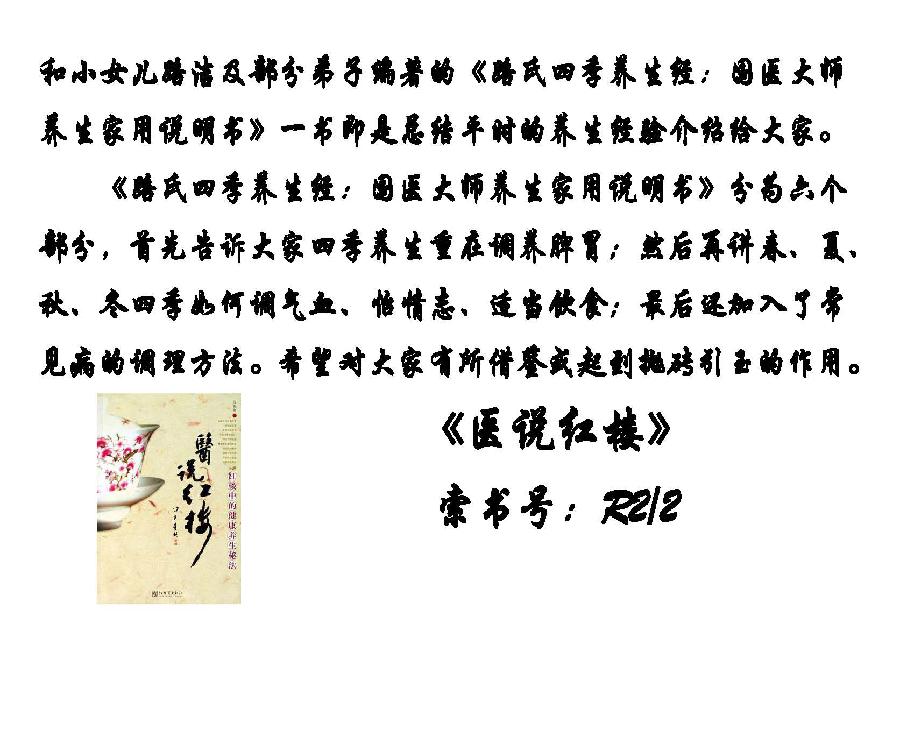 和小女儿路洁及部分弟子编著的《路氏四季养生经：国医大师
养生家用说明书》一书即是总结平时的养生经验介绍给大家。
《路氏四季养生经：国医大师养生家用说明书》分为六个
部分，首先告诉大家四季养生重在调养脾胃；然后再讲春、夏、
秋、冬四季如何调气血、怡情志、适当饮食；最后还加入了常
见病的调理方法。希望对大家有所借鉴或起到抛砖引玉的作用。
《医说红楼》
索书号：R2/2
醫说红楼
红楼中的健康养生秘法